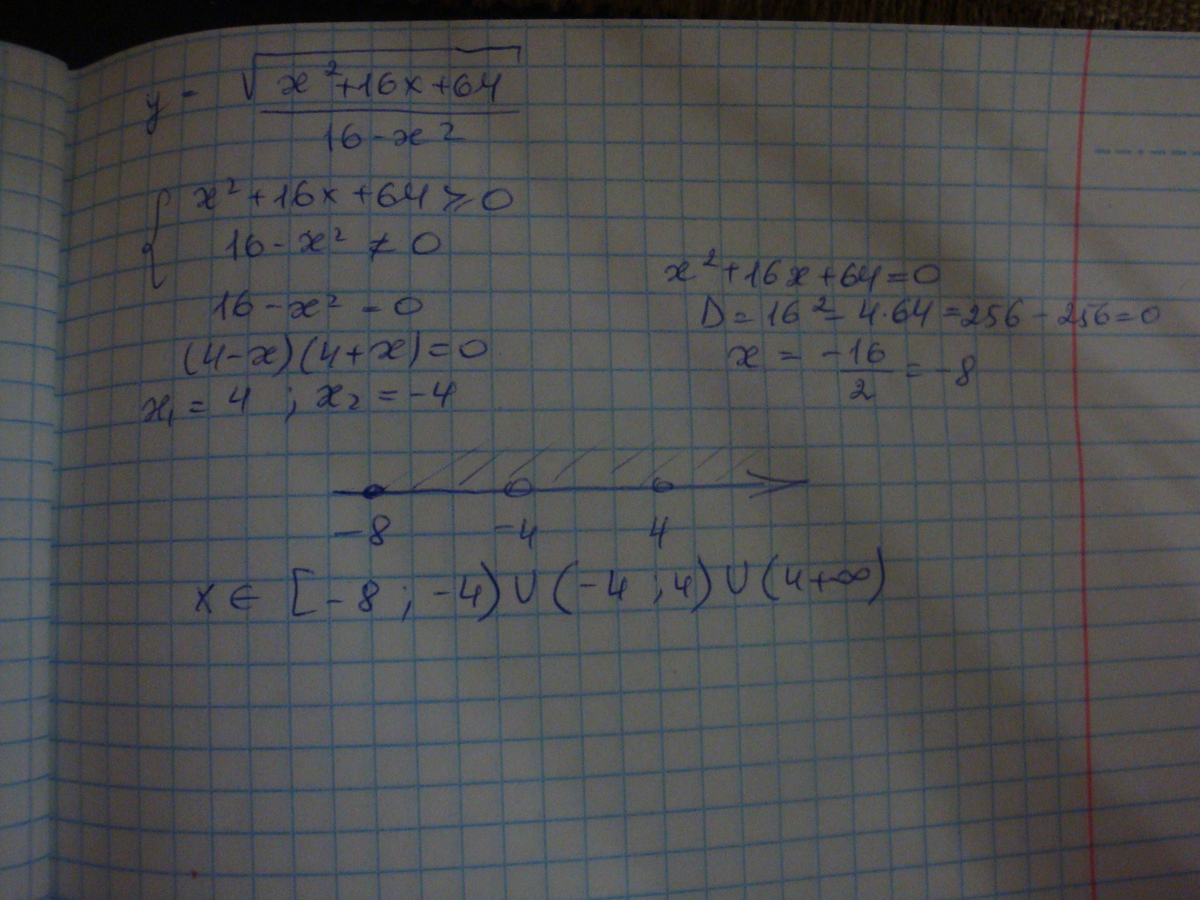 y = √x²+16x+64
16-x²
{ x²+16x+64 ⩾ 0
16-x² ≠ 0
16-x² = 0
(4-x)(4+x)=0
x₁ = 4 ; x₂ = -4
x²+16x+64=0
D = 16²-4·64=256-256=0
x = -16/2 = -8
-8 -4 4
x ∈ [-8 ; -4) ∪ (-4 ; 4) ∪ (4+∞)